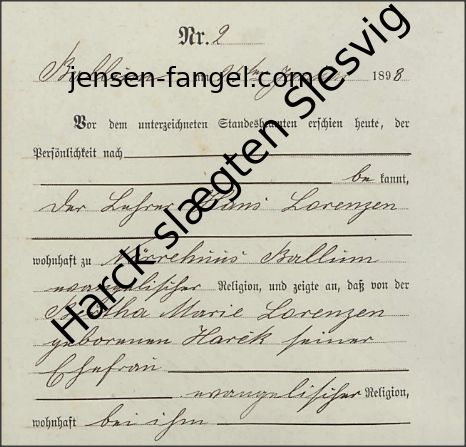 Nr. 2
am 1898
jensen-fangel.com
Harck slægten Slesvig
Vor dem unterzeichneten Standesbeamten erschien heute, der
Persönlichkeit nach
be kannt,
der Lehrer Hans Lorenzen
wohnhaft zu Nörrehuus Ballum
evangelischer Religion, und zeigte an, daß von der
Bertha Marie Lorenzen
geborenen Harck seiner
Ehefrau
evangelischer Religion,
wohnhaft bei ihm